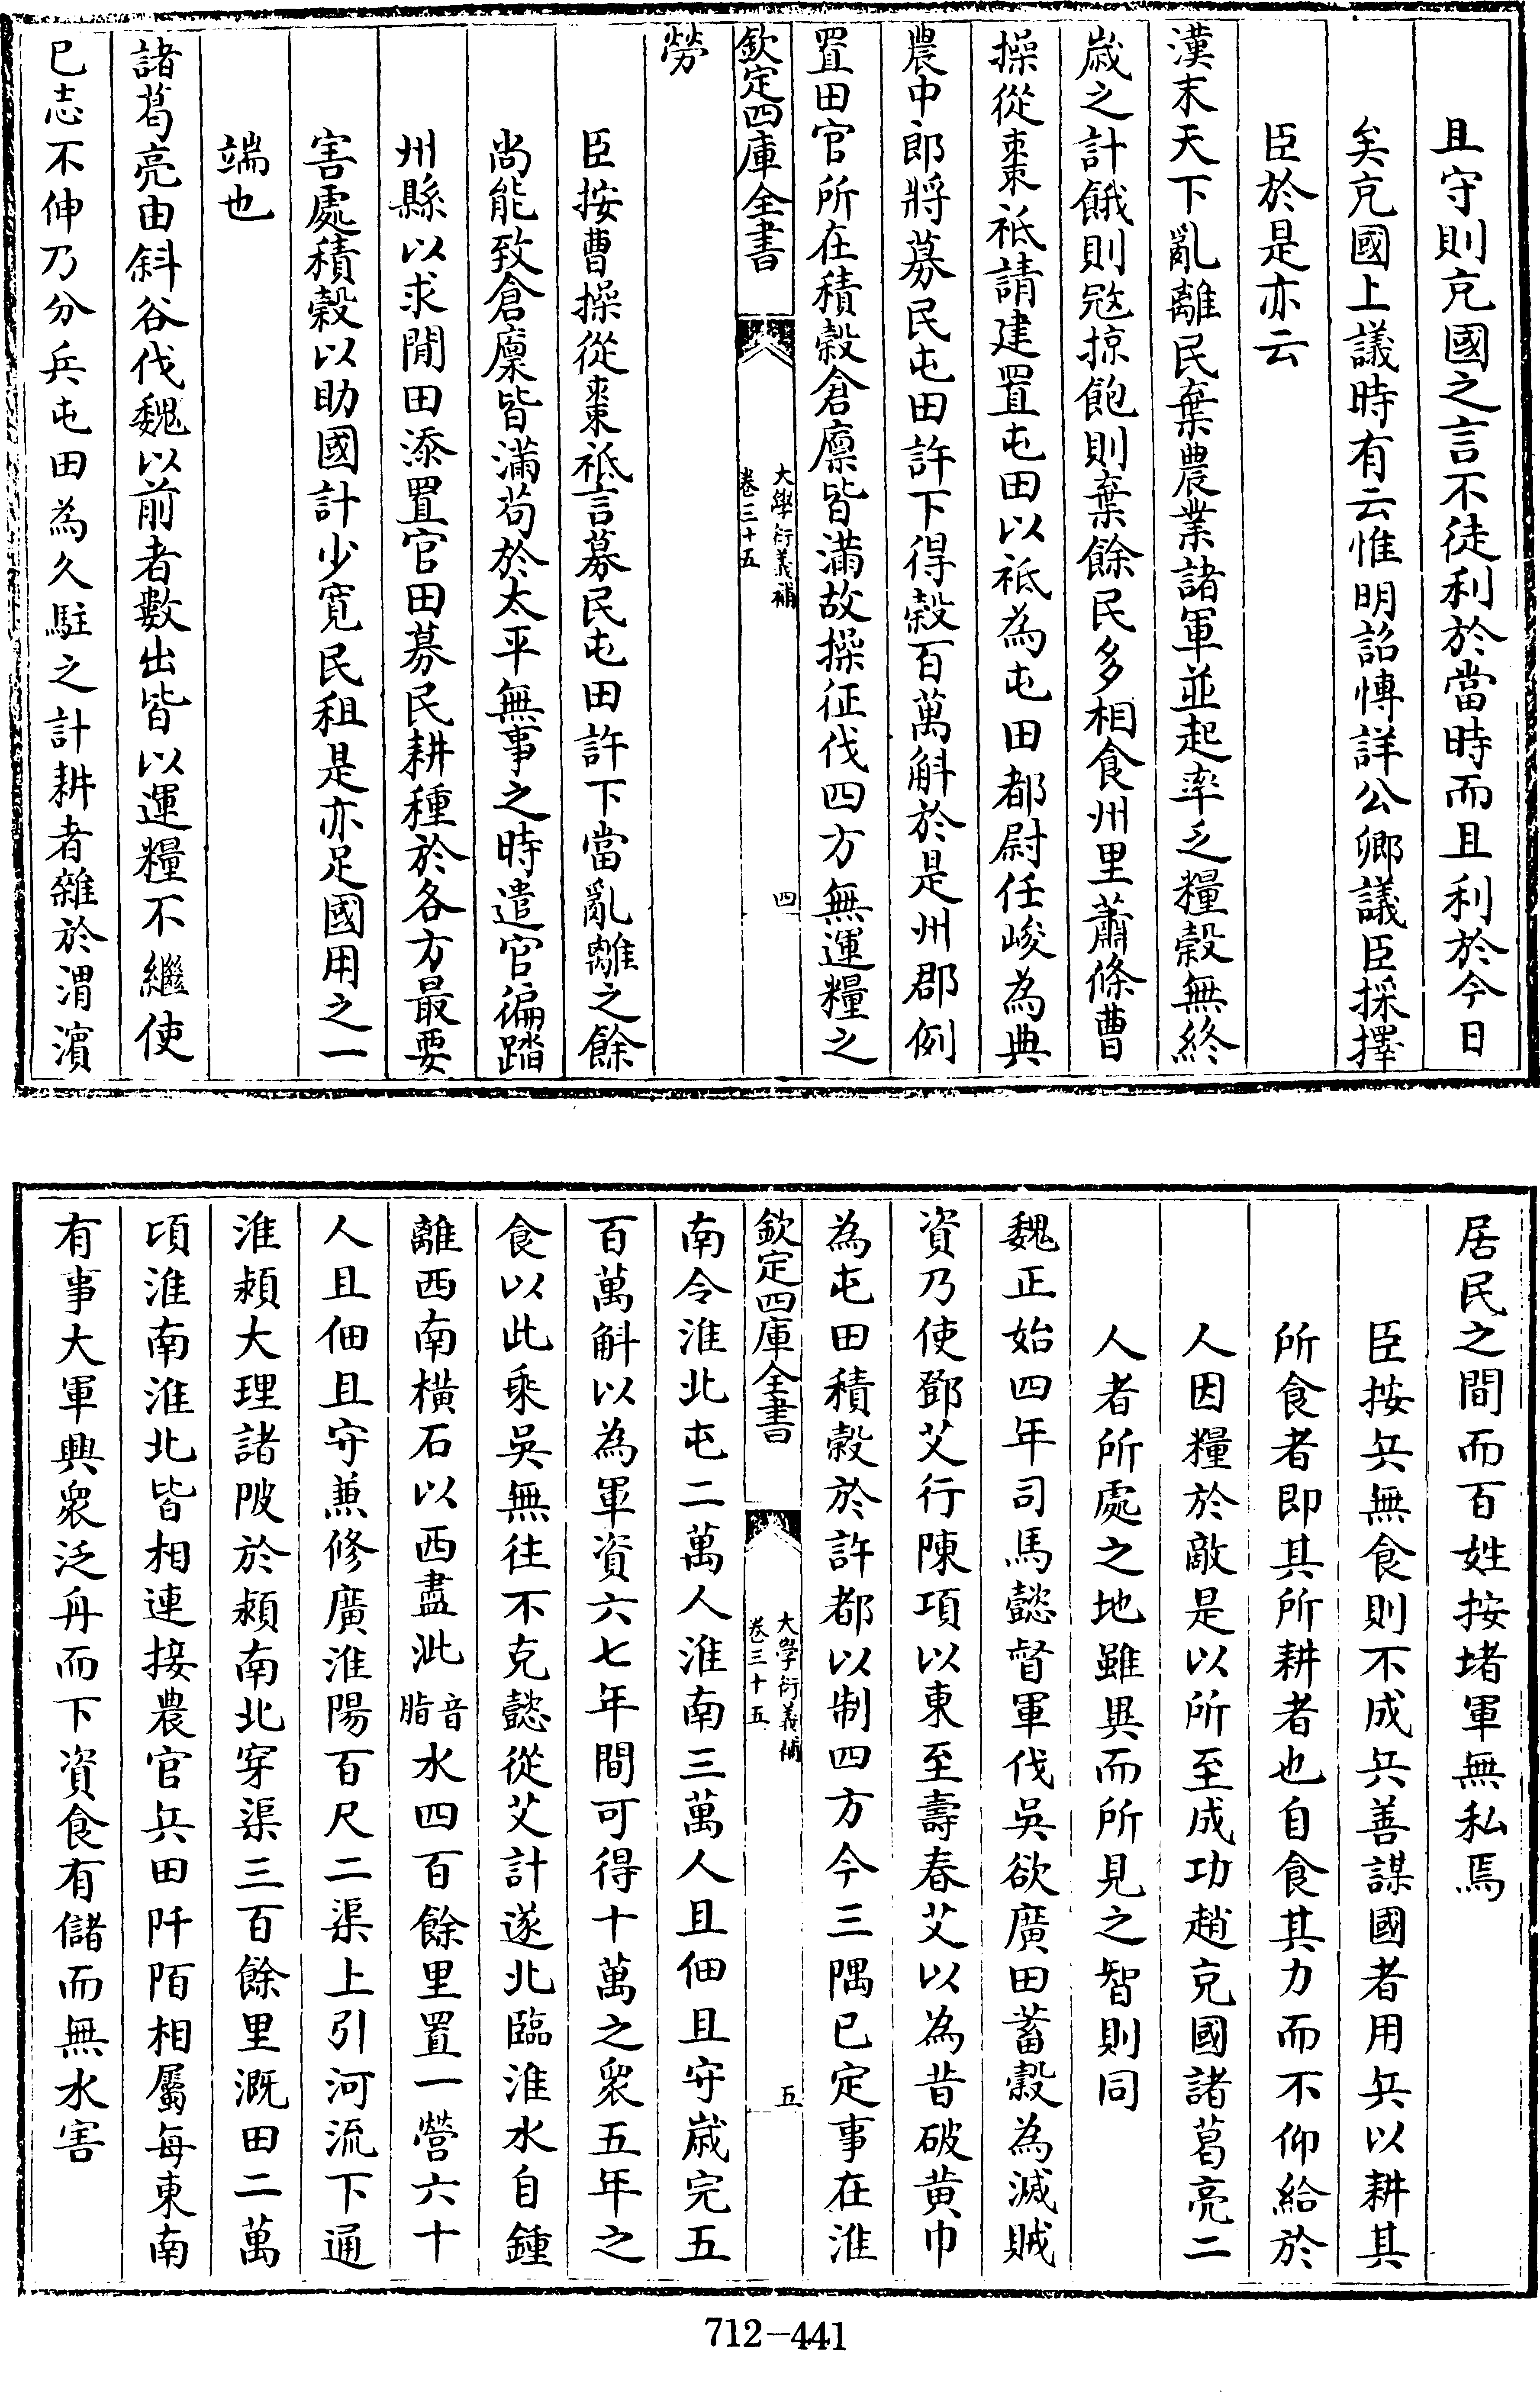 且守則充國之言不徒利於當時而且利於今日
矣充國上議時有云惟明詔愽詳公卿議臣採擇
臣於是亦云
漢末天下亂離民棄農業諸軍並起率乏糧穀無終
歳之計餓則宼掠飽則棄餘民多相食州里蕭條曹
操從棗祗請建置屯田以祗為屯田都尉任峻為典
農中郎將募民屯田許下得穀百萬斛於是州郡例
置田官所在積穀倉廪皆滿故操征伐四方無運糧之
欽定四庫全書
大學衍義補
卷三十五
四
勞
臣按曹操從棗祗言募民屯田許下當亂離之餘
尚能致倉廪皆滿茍於太平無事之時遣官徧踏
州縣以求閒田添置官田募民耕種於各方最要
害處積穀以助國計少寛民租是亦足國用之一
端也
諸葛亮由斜谷伐魏以前者數出皆以運糧不繼使
已志不伸乃分兵屯田為久駐之計耕者雜於渭濵
居民之間而百姓按堵軍無私焉
臣按兵無食則不成兵善謀國者用兵以耕其
所食者即其所耕者也自食其力而不仰給於
人因糧於敵是以所至成功趙充國諸葛亮二
人者所處之地雖異而所見之智則同
魏正始四年司馬懿督軍伐吳欲廣田蓄穀為滅賊
資乃使鄧艾行陳項以東至壽春艾以為昔破黄巾
為屯田積穀於許都以制四方今三隅已定事在淮
欽定四庫全書
大學衍義補
卷三十五
五
南令淮北屯二萬人淮南三萬人且佃且守歳完五
百萬斛以為軍資六七年間可得十萬之衆五年之
食以此乘吳無往不克懿從艾計遂北臨淮水自鍾
離西南横石以西盡沘音脂水四百餘里置一營六十
人且佃且守兼修廣淮陽百尺二渠上引河流下通
淮潁大理諸陂於潁南北穿渠三百餘里溉田二萬
頃淮南淮北皆相連接農官兵田阡陌相屬每東南
有事大軍興衆泛舟而下資食有儲而無水害
712-441